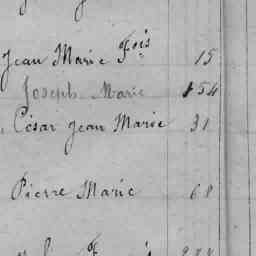 Jean Marie Fois 15
Joseph Marie 154
César Jean Marie 31
Pierre Marie 68